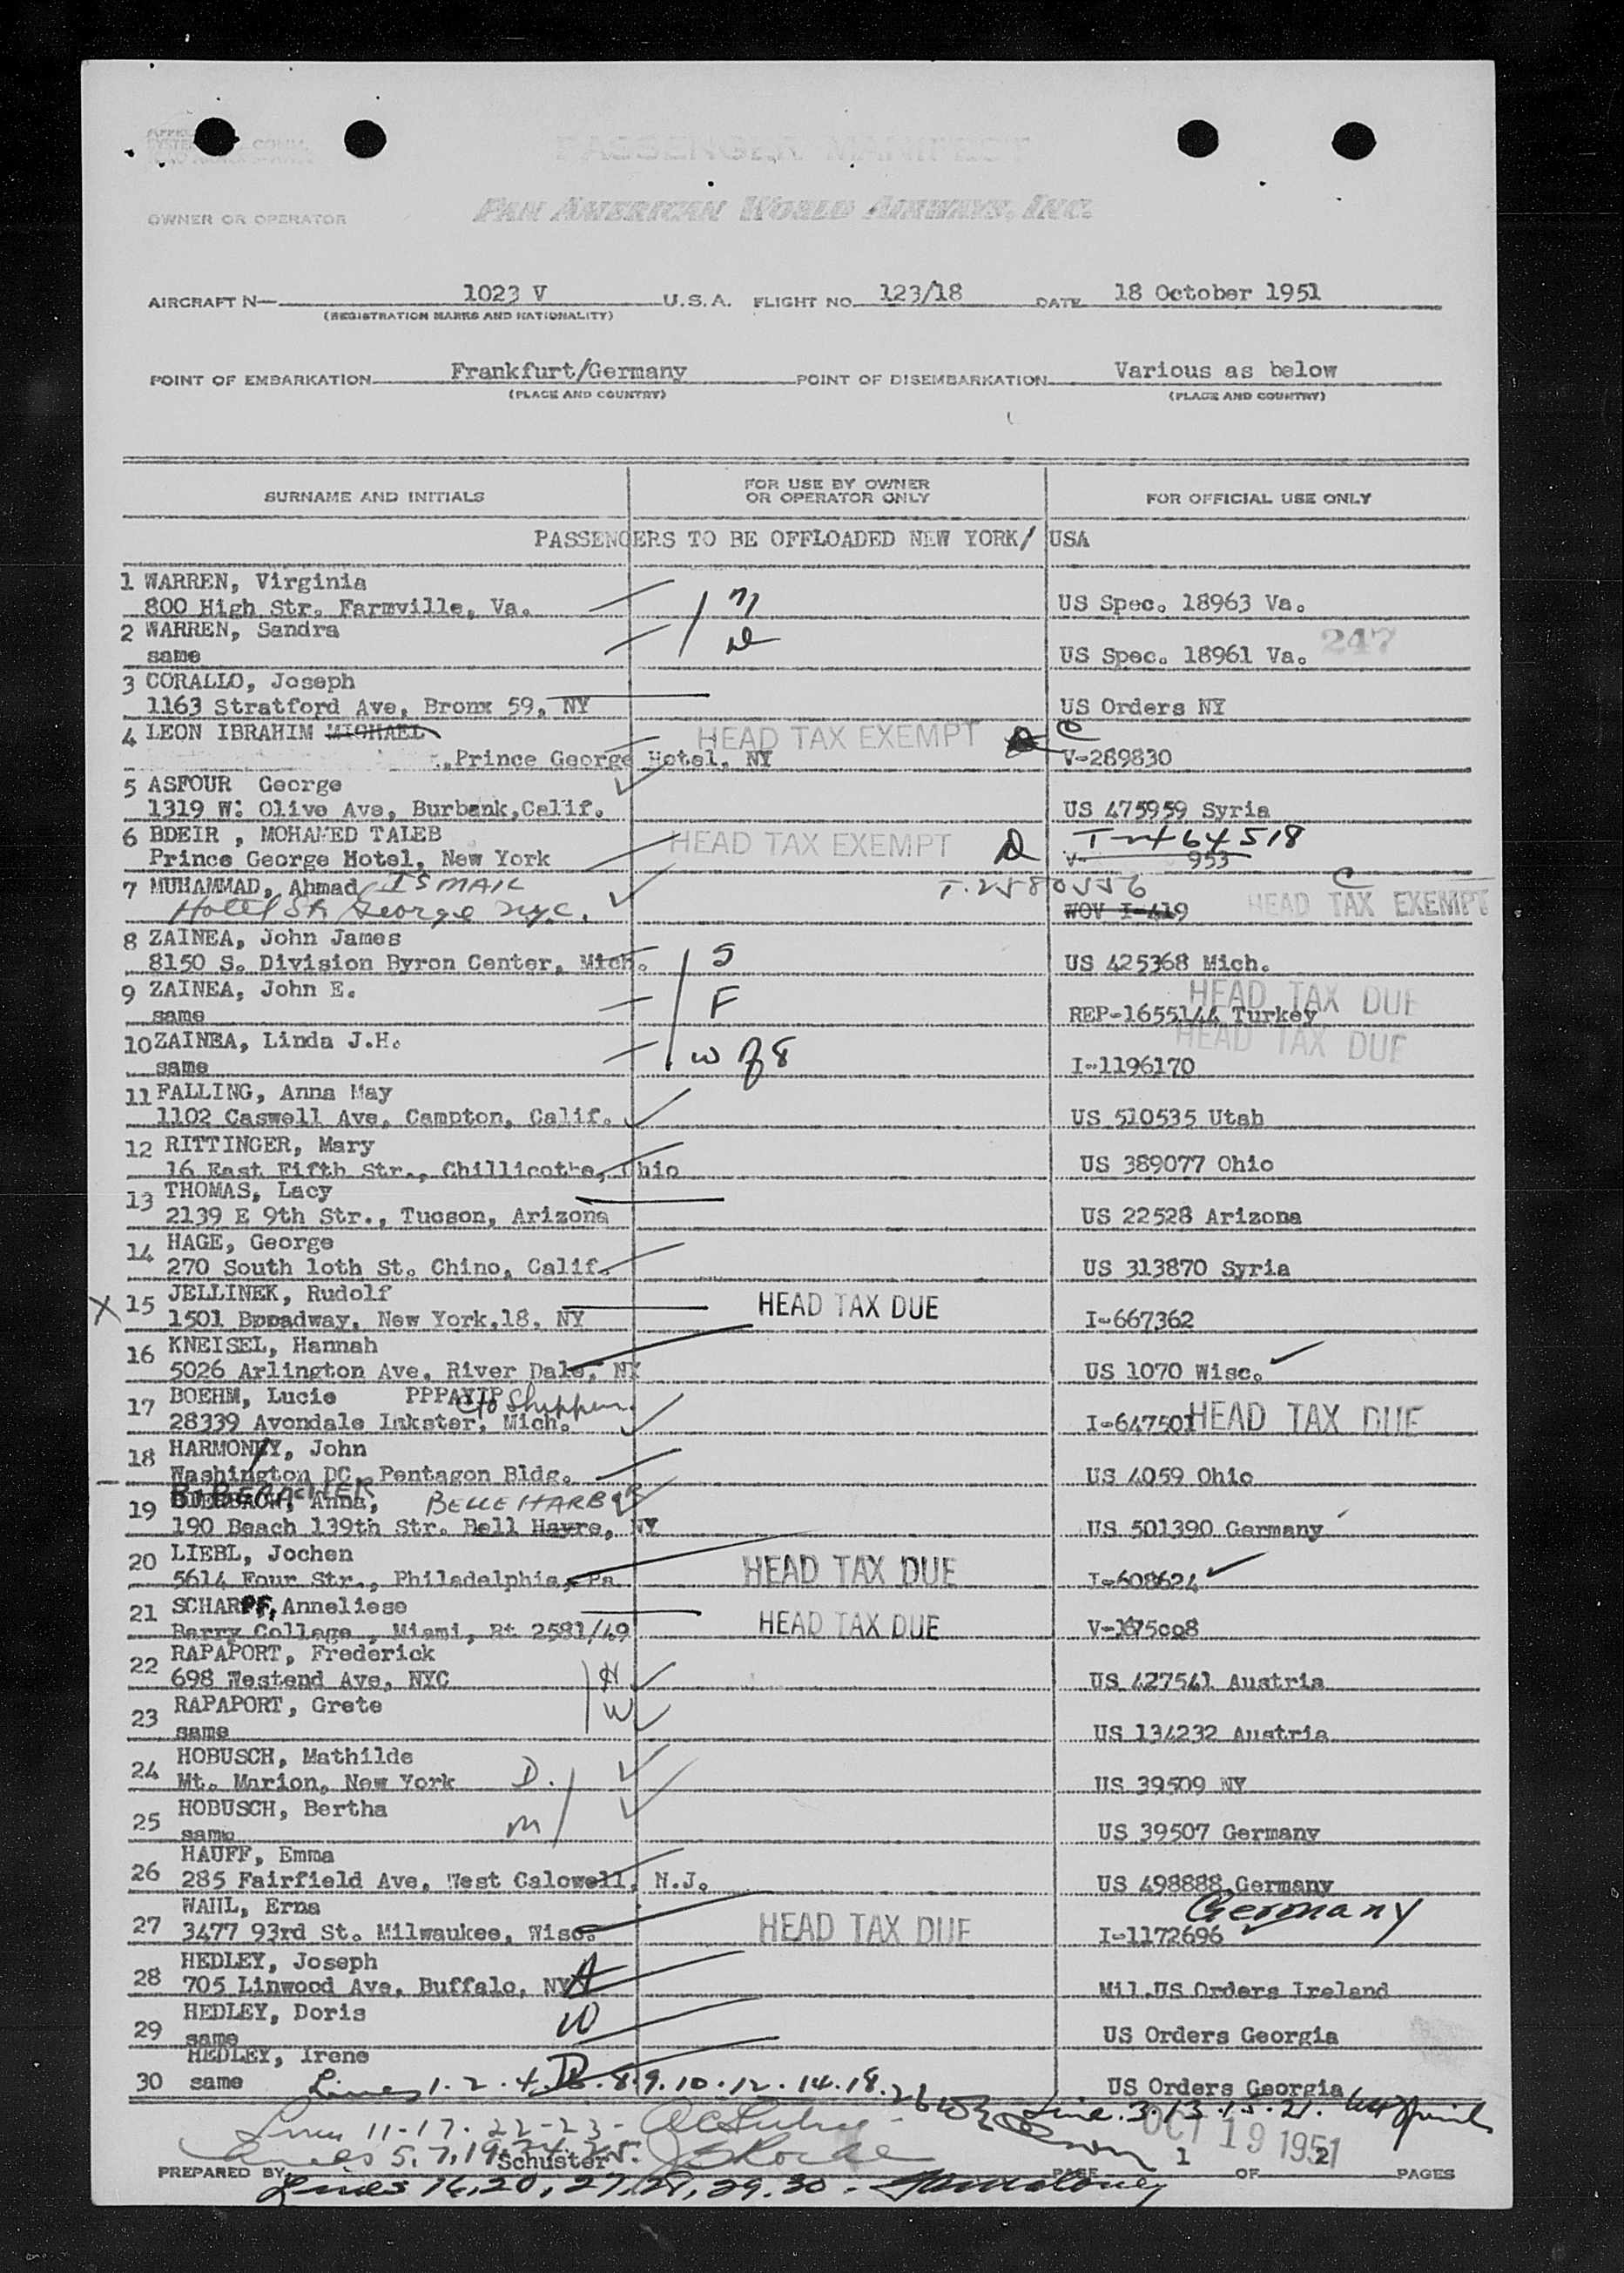 PASSENGER MANIFEST
OWNER OR OPERATOR PAN AMERICAN WORLD AIRWAYS, INC.
AIRCRAFT N— 1023 V U.S.A. FLIGHT NO. 123/18 DATE 18 October 1951
(REGISTRATION MARKS AND NATIONALITY)
POINT OF EMBARKATION Frankfurt/Germany POINT OF DISEMBARKATION Various as below
(PLACE AND COUNTRY) (PLACE AND COUNTRY)
SURNAME AND INITIALS FOR USE BY OWNER OR OPERATOR ONLY FOR OFFICIAL USE ONLY
PASSENGERS TO BE OFFLOADED NEW YORK/ USA
1 WARREN, Virginia
800 High Str. Farmville, Va. US Spec. 18963 Va.
2 WARREN, Sandra 247
same US Spec. 18961 Va.
3 CORALLO, Joseph
1163 Stratford Ave, Bronx 59, NY US Orders NY
4 LEON IBRAHIM MICHAEL HEAD TAX EXEMPT C
.,Prince George Hotel, NY V-289830
5 ASFOUR George
1319 W. Olive Ave, Burbank,Calif. US 475959 Syria
6 BDEIR , MOHAMED TALEB HEAD TAX EXEMPT D T-1464518
Prince George Hotel, New York V- 953
7 MUHAMMAD, Ahmad ISMAIL T.2580556 C
Hotel St George NYC. WOV I-419 HEAD TAX EXEMPT
8 ZAINEA, John James S
8150 S. Division Byron Center, Mich. US 425368 Mich.
9 ZAINEA, John E. F HEAD TAX DUE
same REP-1655144 Turkey
10 ZAINEA, Linda J.H. W of 8 HEAD TAX DUE
same I-1196170
11 FALLING, Anna May
1102 Caswell Ave, Campton, Calif. US 510535 Utah
12 RITTINGER, Mary
16 East Fifth Str., Chillicothe, Ohio US 389077 Ohio
13 THOMAS, Lacy
2139 E 9th Str., Tucson, Arizona US 22528 Arizona
14 HAGE, George
270 South 1oth St. Chino, Calif. US 313870 Syria
X 15 JELLINEK, Rudolf HEAD TAX DUE
1501 Bpoadway, New York,18, NY I-667362
16 KNEISEL, Hannah
5026 Arlington Ave, River Dale, NY US 1070 Wisc.
17 BOEHM, Lucie PPPAYIP c/o Shippen
28339 Avondale Inkster, Mich. I-647501 HEAD TAX DUE
18 HARMONEY, John
Washington DC, Pentagon Bldg. US 4059 Ohio
19 Anna, BELLE HARBOR
190 Beach 139th Str. Bell Hayre, NY US 501390 Germany
20 LIEBL, Jochen HEAD TAX DUE
5614 Four Str., Philadelphia, Pa I-608624
21 SCHARPF, Anneliese HEAD TAX DUE
Barry College , Miami, Rt 2581/49 V-1675oo8
22 RAPAPORT, Frederick
698 Westend Ave, NYC H US 427541 Austria
23 RAPAPORT, Grete W
same US 134232 Austria
24 HOBUSCH, Mathilde
Mt. Marion, New York D. US 39509 NY
25 HOBUSCH, Bertha
same M US 39507 Germany
26 HAUFF, Emma
285 Fairfield Ave, West Calowell, N.J. US 498888 Germany
27 WAHL, Erna HEAD TAX DUE Germany
3477 93rd St. Milwaukee, Wisc. I-1172696
28 HEDLEY, Joseph
705 Linwood Ave, Buffalo, NY Mil.US Orders Ireland
29 HEDLEY, Doris W
same US Orders Georgia
30 HEDLEY, Irene
same US Orders Georgia
Lines 1.2.4.6.8.9.10.12.14.18.26 Line.3.13.15.21.
Lines 11-17-22-23- OCT 19 1951
Lines 5.7.19.24.25.
PREPARED BY Schuster PAGE 1 OF 2 PAGES
Lines 16,20,27,28,29,30.